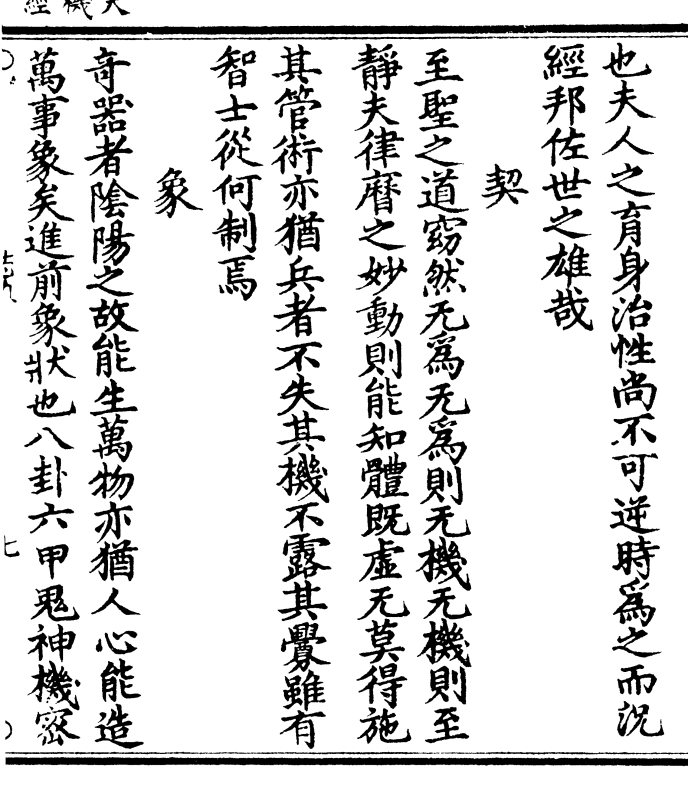 也夫人之育身治性尚不可逆時爲之而況
經邦佐世之雄哉
契
至聖之道窈然无爲无爲則无機无機則至
靜夫律曆之妙動則能知體既虛无莫得施
其管術亦猶兵者不失其機不露其釁雖有
智士從何制焉
象
奇器者陰陽之故能生萬物亦猶人心能造
萬事象矣進前象狀也八卦六甲鬼神機密
七